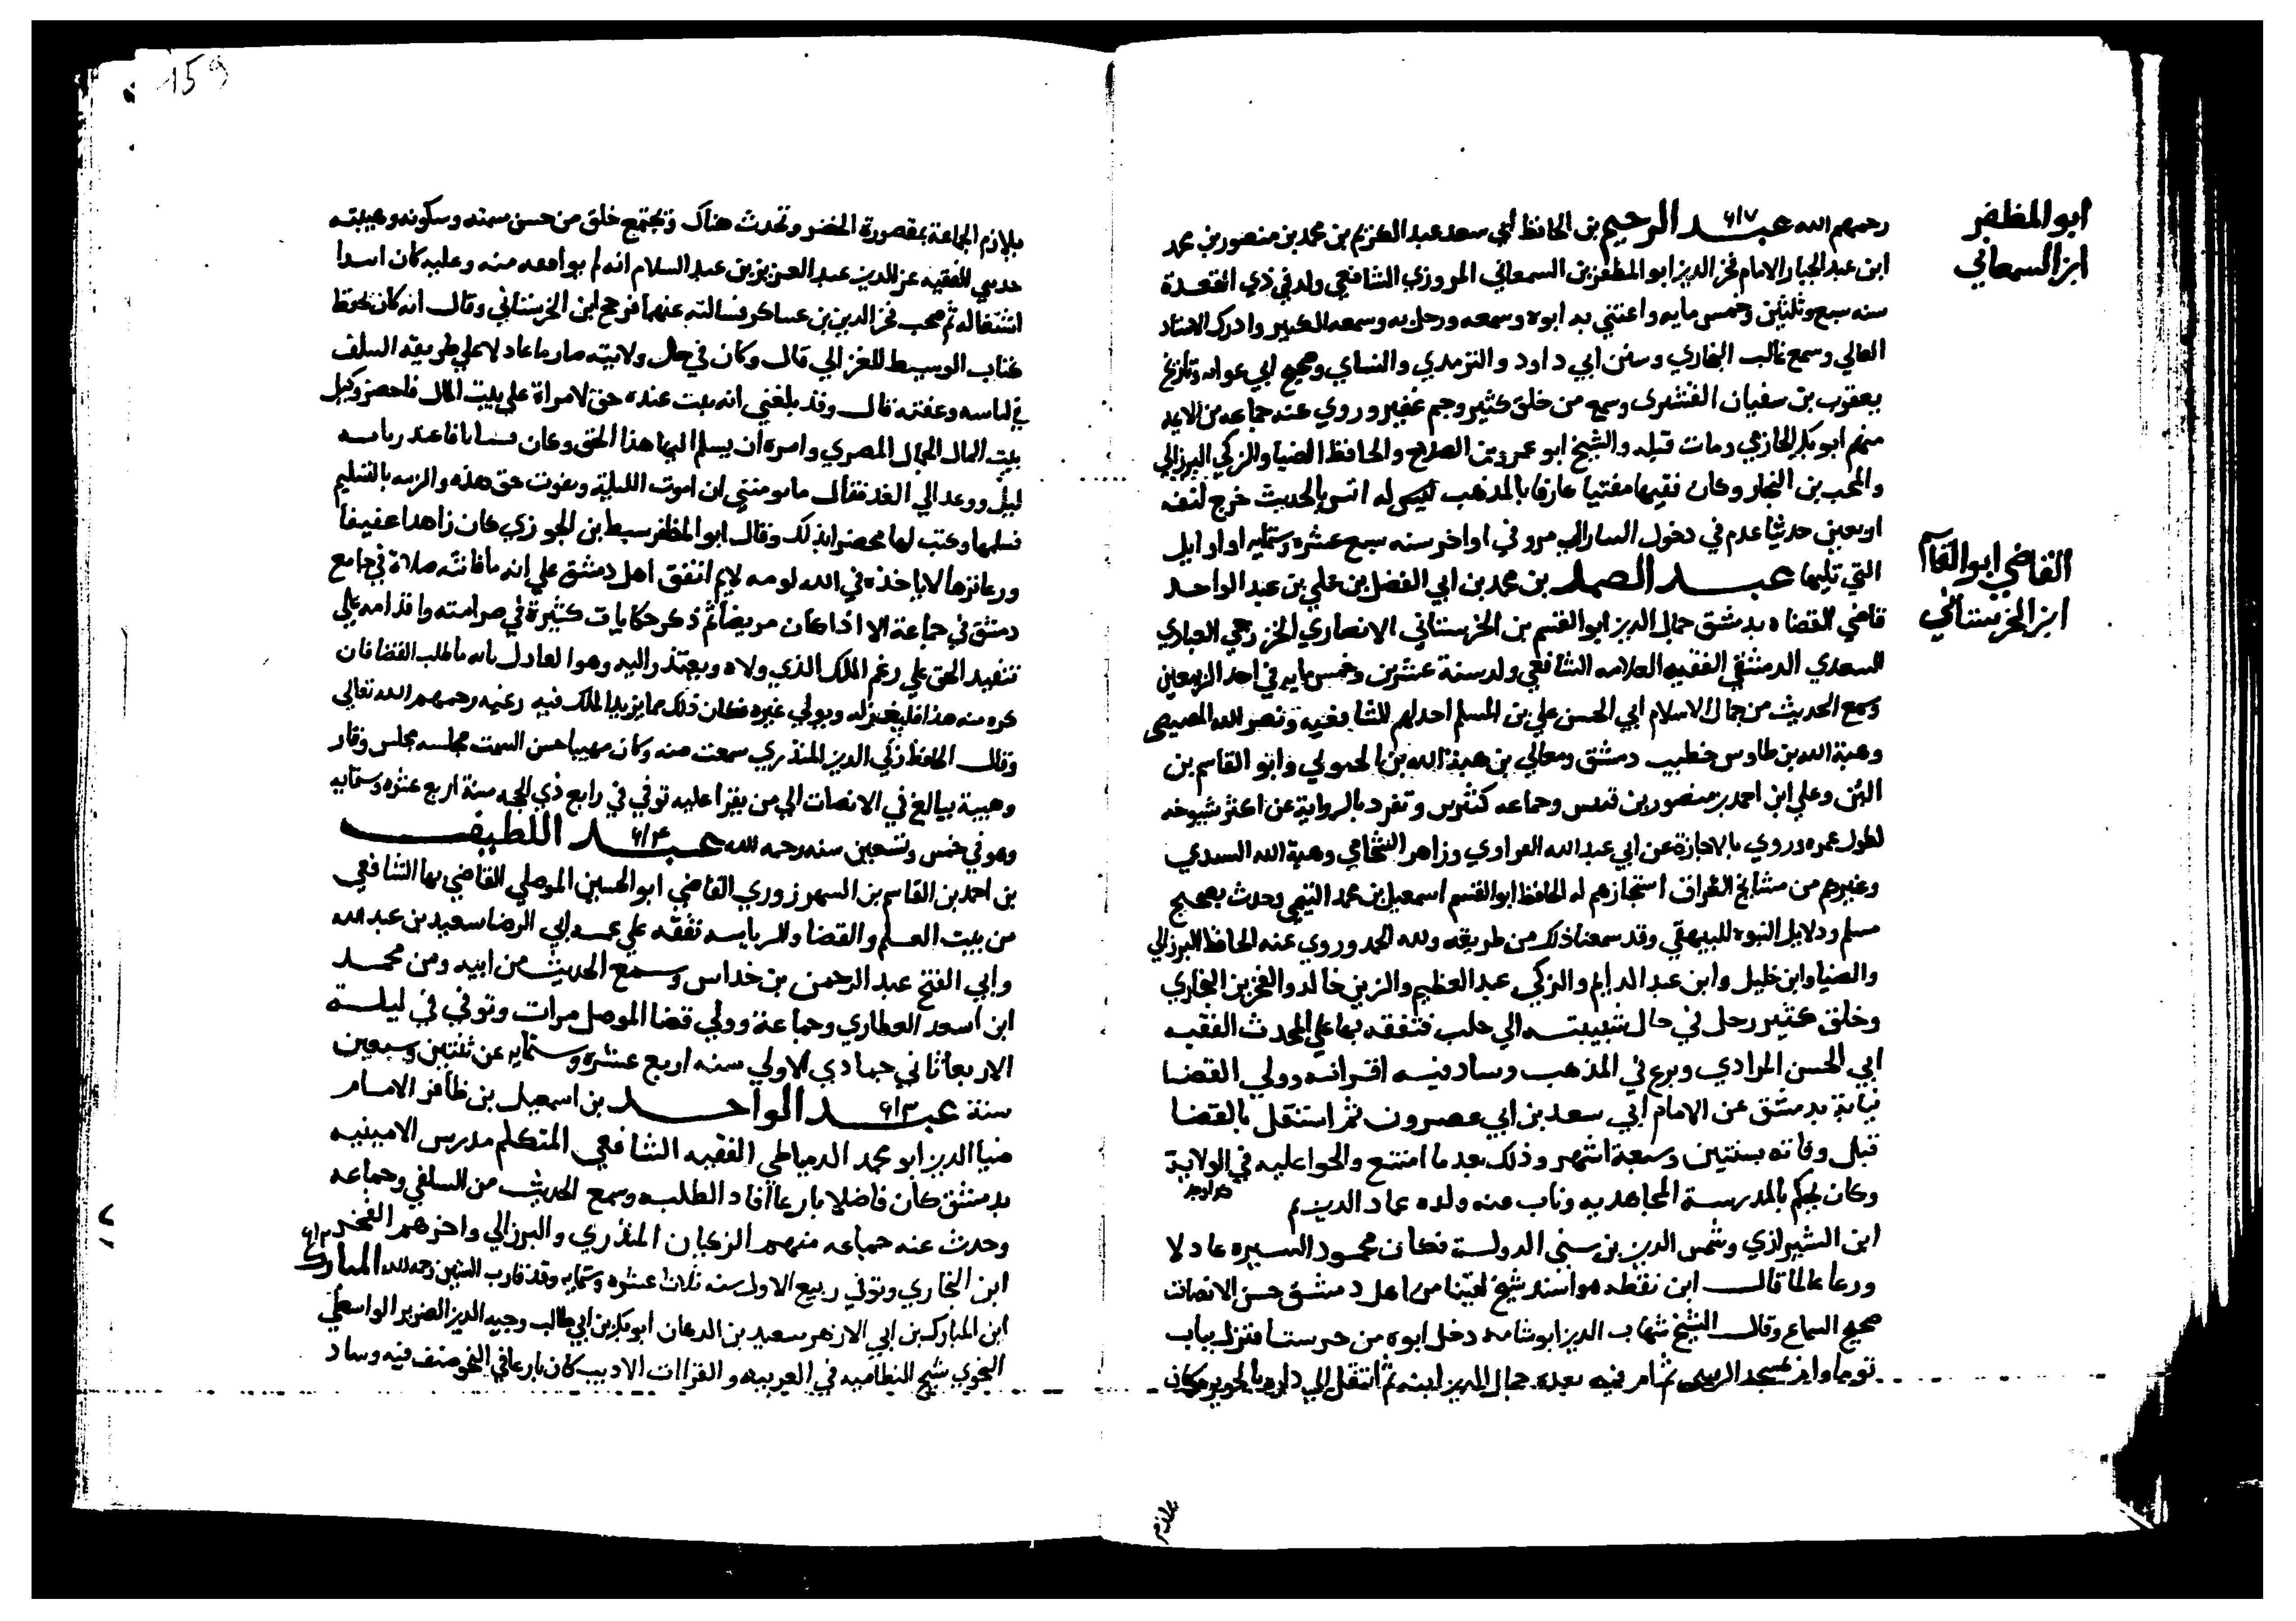 ابو المظفر
ابن السمعاني
رحمهم الله عبد الرحيم بن الحافظ ابي سعد عبد الكريم بن محمد بن منصور بن محمد
٦١٧
ابن عبد الجبار الامام فخر الدين ابو المظفر بن السمعاني المروزي الشافعي ولد في ذي القعدة
سنه سبع وثلثين وخمس مايه واعتني به ابوه وسمعه ورحل به وسمعه الكبير وادرك الاسناد
العالي وسمع غالب البخاري وسنن ابي داود والترمدي والنساي وصحيح ابي عوانه وتاريخ
يعقوب بن سفيان الفسوى وسمع من خلق كثير وجم غفير وروي عنه جماعه من الايمه
منهم ابو بكر الحازمي ومات قبله والشيخ ابو عمرو بن الصلاح والحافظ الضيا والزكي البرزالي
والمحب بن النجار وكان فقيها مفتيا عارفا بالمذهب له انس بالحديث خرج لنفسه
اربعين حديثا عدم في دخول التتار الي مرو في اواخر سنه سبع عشره وستمايه او اوايل
القاضي ابو القاسم
ابن الحرستاني
التي تليها عبد الصمد بن محمد بن ابي الفضل بن علي بن عبد الواحد
قاضي القضاه بدمشق جمال الدين ابو القسم بن الحرستاني الانصاري الخزرجي العبادي
السعدي الدمشقي الفقيه العلامه الشافعي ولد سنة عشرين وخمس مايه في احد الربيعين
وسمع الحديث من جمال الاسلام ابي الحسن علي بن المسلم احد ايم الشافعيه ونصر الله المصيصي
وهبة الله بن طاوس خطيب دمشق ومعالي بن هبة الله بن الحبوبي وابو القاسم بن
البن وعلي ابن احمد بن منصور بن قبيس وجماعه كثيرين وتفرد بالرواية عن اكثر شيوخه
لطول عمره وروي بالاجازة عن ابي عبد الله الفراوي وزاهر الشحامي وهبة الله السيدي
وغيرهم من مشايخ العراق استجازهم له الحافظ ابو القسم اسمعيل بن محمد التيمي وحدث بصحيح
مسلم ودلايل النبوه للبيهقي وقد سمعنا ذلك من طريقه ولله الحمد وروي عنه الحافظ البرزالي
والضيا وابن خليل وابن عبد الدايم والزكي عبد العظيم والزين خالد والفخر بن البخاري
وخلق كثير رحل في حال شبيبته الي حلب فتفقه بها علي المحدث الفقيه
ابي الحسن المرادي وبرع في المذهب وساد فيه اقرانه وولي القضا
نيابة بدمشق عن الامام ابي سعد بن ابي عصرون ثم استقل بالقضا
قبل وفاته بسنتين وسبعة اشهر وذلك بعد ما امتنع والحوا عليه في الولاية
وكان يحكم بالمدرسة المجاهديه وناب عنه ولده عماد الدين ثم
ابن الشيرازي وشمس الدين بن سني الدولة فكان محمود السيره عادلا
ورعا عالما قال ابن نقطه هو اسند شيخ لقينا من اهل دمشق حسن الانصات
صحيح السماع وقال الشيخ شهاب الدين ابو شامه دخل ابوه من حرستا فنزل بباب
توما وام بمسجد الزينبي ثم ام فيه بعده جمال الدين ابنه ثم انتقل الي داره بالحويره وكان
يلازم
159
يلازم الجماعة بمقصورة الخضر وتحدث هناك وتجتمع خلق من حسن سمته وسكونه وهيبته
حدثني الفقيه عز الدين عبد العزيز بن عبد السلام انه لم ير افقه منه وعليه كان ابتدا
اشتغاله ثم صحب فخر الدين بن عساكر فسالته عنهما فرجح ابن الحرستاني وقال انه كان يحفظ
كتاب الوسيط للغزالي قال وكان في حال ولايته صارما عادلا علي طريقه السلف
في لباسه وعفته قال وقد بلغني انه ثبت عنده حق لامراة علي بيت المال فاحضر وكيل
بيت المال الجمال المصري وامره ان يسلم اليها هذا الحق وكان بستانا فاعتذر بانه
ليل ووعد الي الغد فقال ما يومنني ان اموت الليلة ويفوت حق هذه والزمه بالتسليم
فسلمها وكتب لها محضرا بذلك وقال ابو المظفر سبط بن الجوزي كان زاهدا عفيفا
ورعا نزها لا ياخذه في الله لومه لايم اتفق اهل دمشق علي انه ما فاتته صلاة في جامع
دمشق في جماعة الا اذا كان مريضا ثم ذكر حكايات كثيرة في صرامته واقدامه علي
تنفيذ الحق علي رغم الملك الذي ولاه ويعتذر اليه وهو العادل بانه ما طلب القضا فان
كره منه هذا فليعزله ويولي غيره فكان ذلك مما يزيد الملك فيه رغبه رحمهم الله تعالي
وقال الحافظ زكي الدين المنذري سمعت منه وكان مهيبا حسن السمت مجلسه مجلس وقار
وهيبة يبالغ في الانصات الي من يقرا عليه توفي في رابع ذي الحجه سنة اربع عشره وستمايه
وهو في خمس وتسعين سنه رحمه الله عبد اللطيف
٦١٤
بن احمد بن القاسم بن الشهرزوري القاضي ابو الحسين الموصلي القاضي بها الشافعي
من بيت العلم والقضا والرياسه تفقه علي عمه ابي الرضا سعيد بن عبد الله
وابي الفتح عبد الرحمن بن خداس وسمع الحديث من ابيه ومن محمد
ابن اسعد العطاري وجماعة وولي قضا الموصل مرات وتوفي في ليلة
الاربعا ثاني جمادي الاولي سنه اربع عشره وستمايه عن ثنتين وسبعين
سنة عبد الواحد بن اسمعيل بن ظافر الامام
٦١٣
ضيا الدين ابو محمد الدمياطي الفقيه الشافعي المتكلم مدرس الامينيه
بدمشق كان فاضلا بارعا افاد الطلبه وسمع الحديث من السلفي وجماعه
وحدث عنه جماعه منهم الزكيان المنذري والبرزالي واخرهم الفخر
ابن البخاري وتوفي ربيع الاول سنه ثلاث عشره وستمايه وقد قارب الستين رحمه الله المبارك
٦١٢
ابن المبارك بن ابي الازهر سعيد بن الدهان ابو بكر بن ابي طالب وجيه الدين الضرير الواسطي
النحوي شيخ النظاميه في العربيه والقراات الاديب كان بارعا في النحو صنف فيه وساد